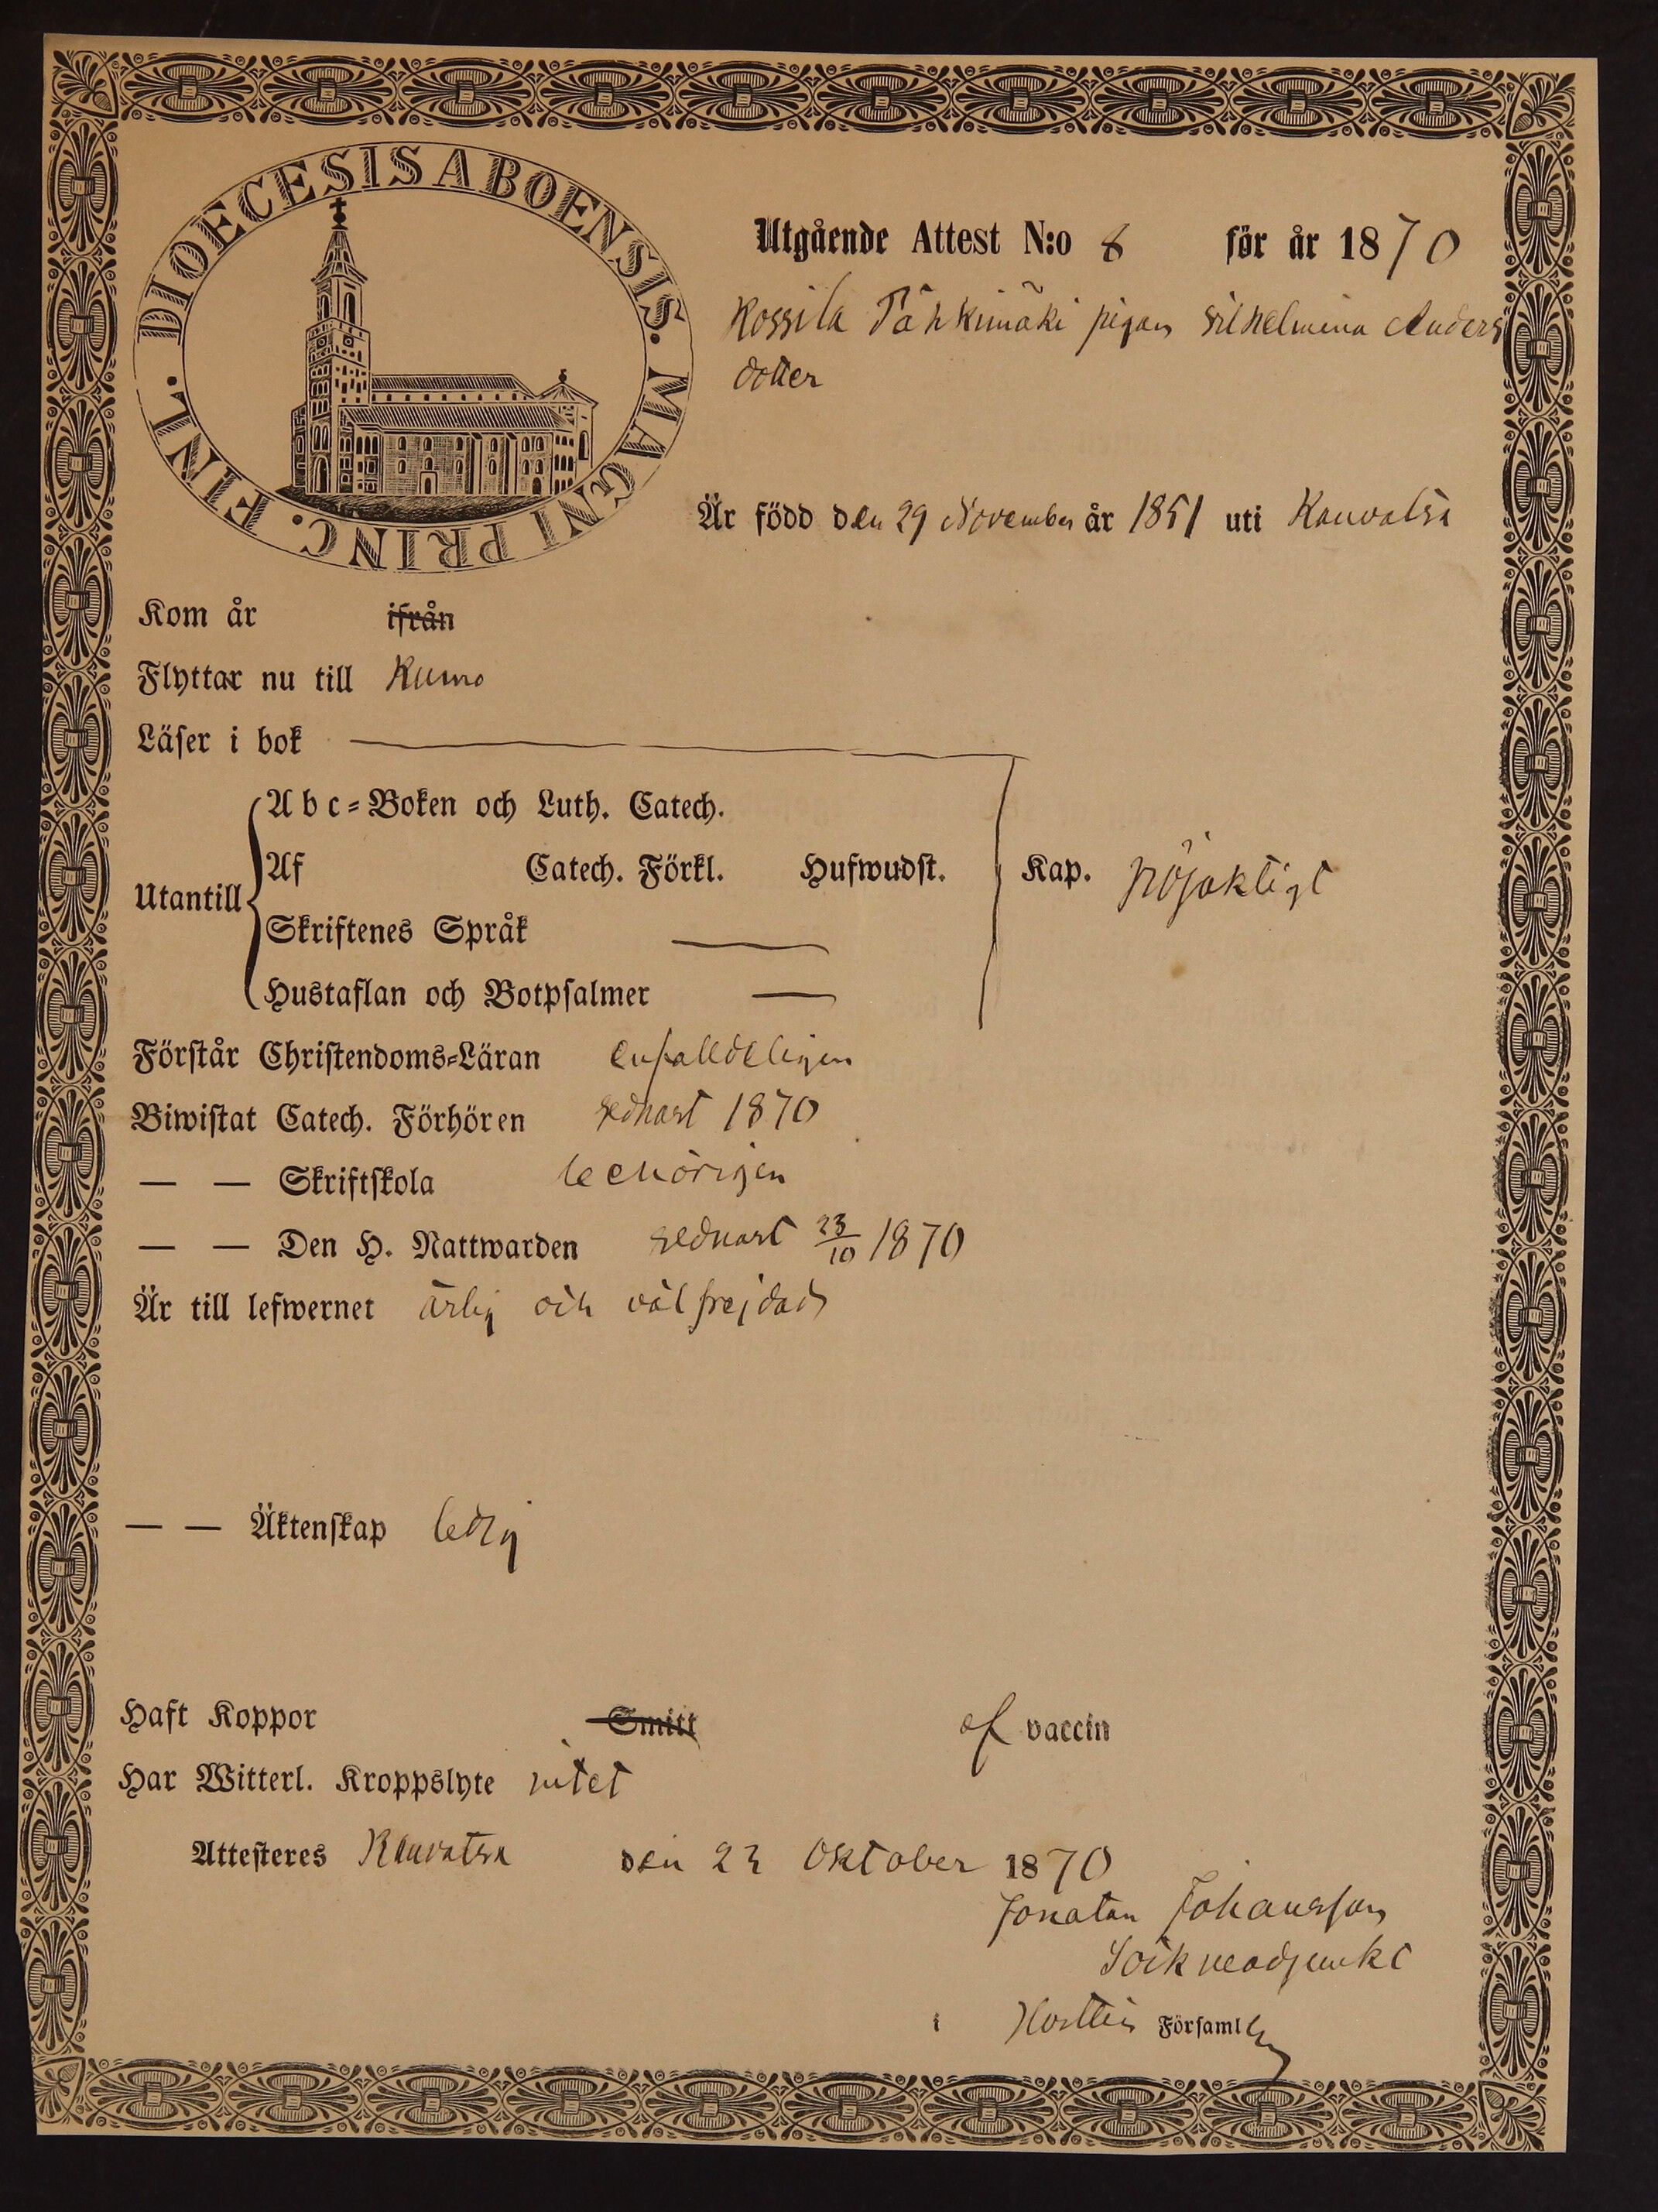 DIOECESIS ABOENSIS. MAGNI PRINC. FINL.
Utgående Attest N:o 8 för år 1870
Kossila Pähkimäki pigan Vilhelmina Anders
dotter
Är född den 29 November år 1851 uti Kauvatsa
Kom år ifrån
Flyttar nu till Kumo
Läser i bok
Abc=Boken och Luth. Catech.
Utantill Af Catech. Förkl. Hufwudst. Kap. nöjaktigt
Skriftenes Språk
Hustaflan och Botpsalmer
Förstår Christendoms=Läran enfalldeligen
Biwistat Catech. Förhören sednast 1870
— — Skriftskola behörigen
— — Den H. Nattwarden sednast 23/10 1870
Är till lefwernet ärlig och välfrejdad
— — Äktenskap ledig
Haft Koppor Smitt af vaccin
Har Witterl. Kroppslyte intet
Attesteres Kauvatsa den 23 Oktober 1870
Jonatan Johansson
Sockneadjunkt
i Församl